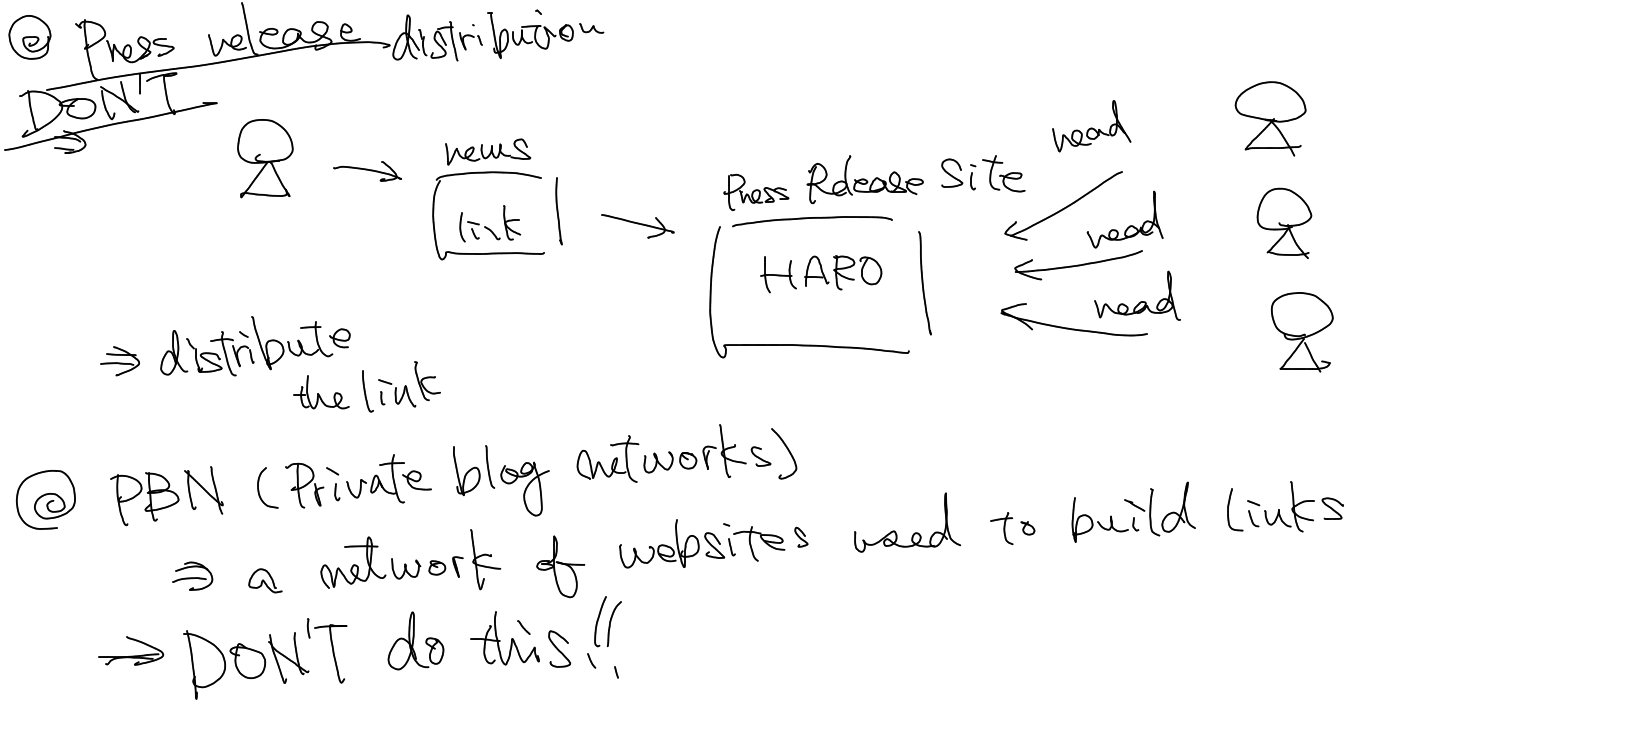 @ Press release distribution
DON'T
⇒
news
link
Press Release Site
HARO
read
read
read
⇒ distribute
the link
@ PBN (Private blog networks)
⇒ a network of websites used to build links
→ DON'T do this!!